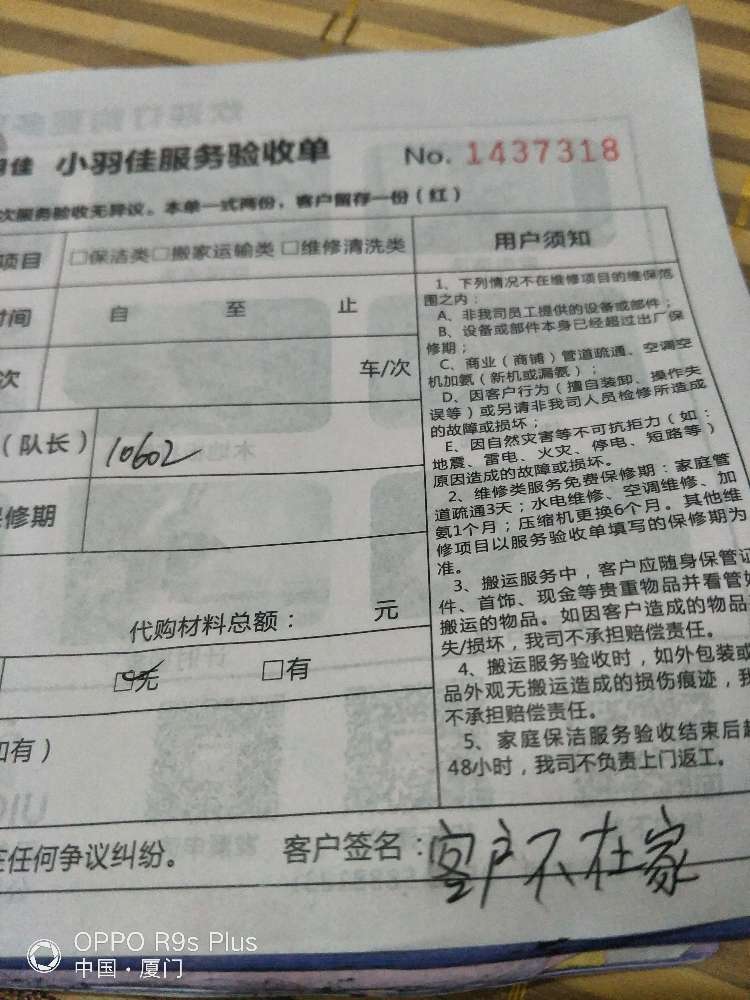 羽佳 小羽佳服务验收单 No. 1437318
次服务验收无异议。本单一式两份，客户留存一份（红）
项目 □保洁类□搬家运输类 □维修清洗类
时间 自 至 止
次 车/次
（队长） 10602
修期
代购材料总额： 元
□无 □有
如有）
任何争议纠纷。 客户签名：客户不在家
用户须知
1、下列情况不在维修项目的维保范
围之内：
A、非我司员工提供的设备或部件；
B、设备或部件本身已经超过出厂保
修期；
C、商业（商铺）管道疏通、空调空
机加氨（新机或漏氨）；
D、因客户行为（擅自装卸、操作失
误等）或另请非我司人员检修所造成
的故障或损坏；
E、因自然灾害等不可抗拒力（如：
地震、雷电、火灾、停电、短路等）
原因造成的故障或损坏。
2、维修类服务免费保修期：家庭管
道疏通3天；水电维修、空调维修、加
氨1个月；压缩机更换6个月。其他维
修项目以服务验收单填写的保修期为
准。
3、搬运服务中，客户应随身保管证
件、首饰、现金等贵重物品并看管好
搬运的物品。如因客户造成的物品
失/损坏，我司不承担赔偿责任。
4、搬运服务验收时，如外包装或
品外观无搬运造成的损伤痕迹，我
不承担赔偿责任。
5、家庭保洁服务验收结束后超
48小时，我司不负责上门返工。
OPPO R9s Plus
中国·厦门